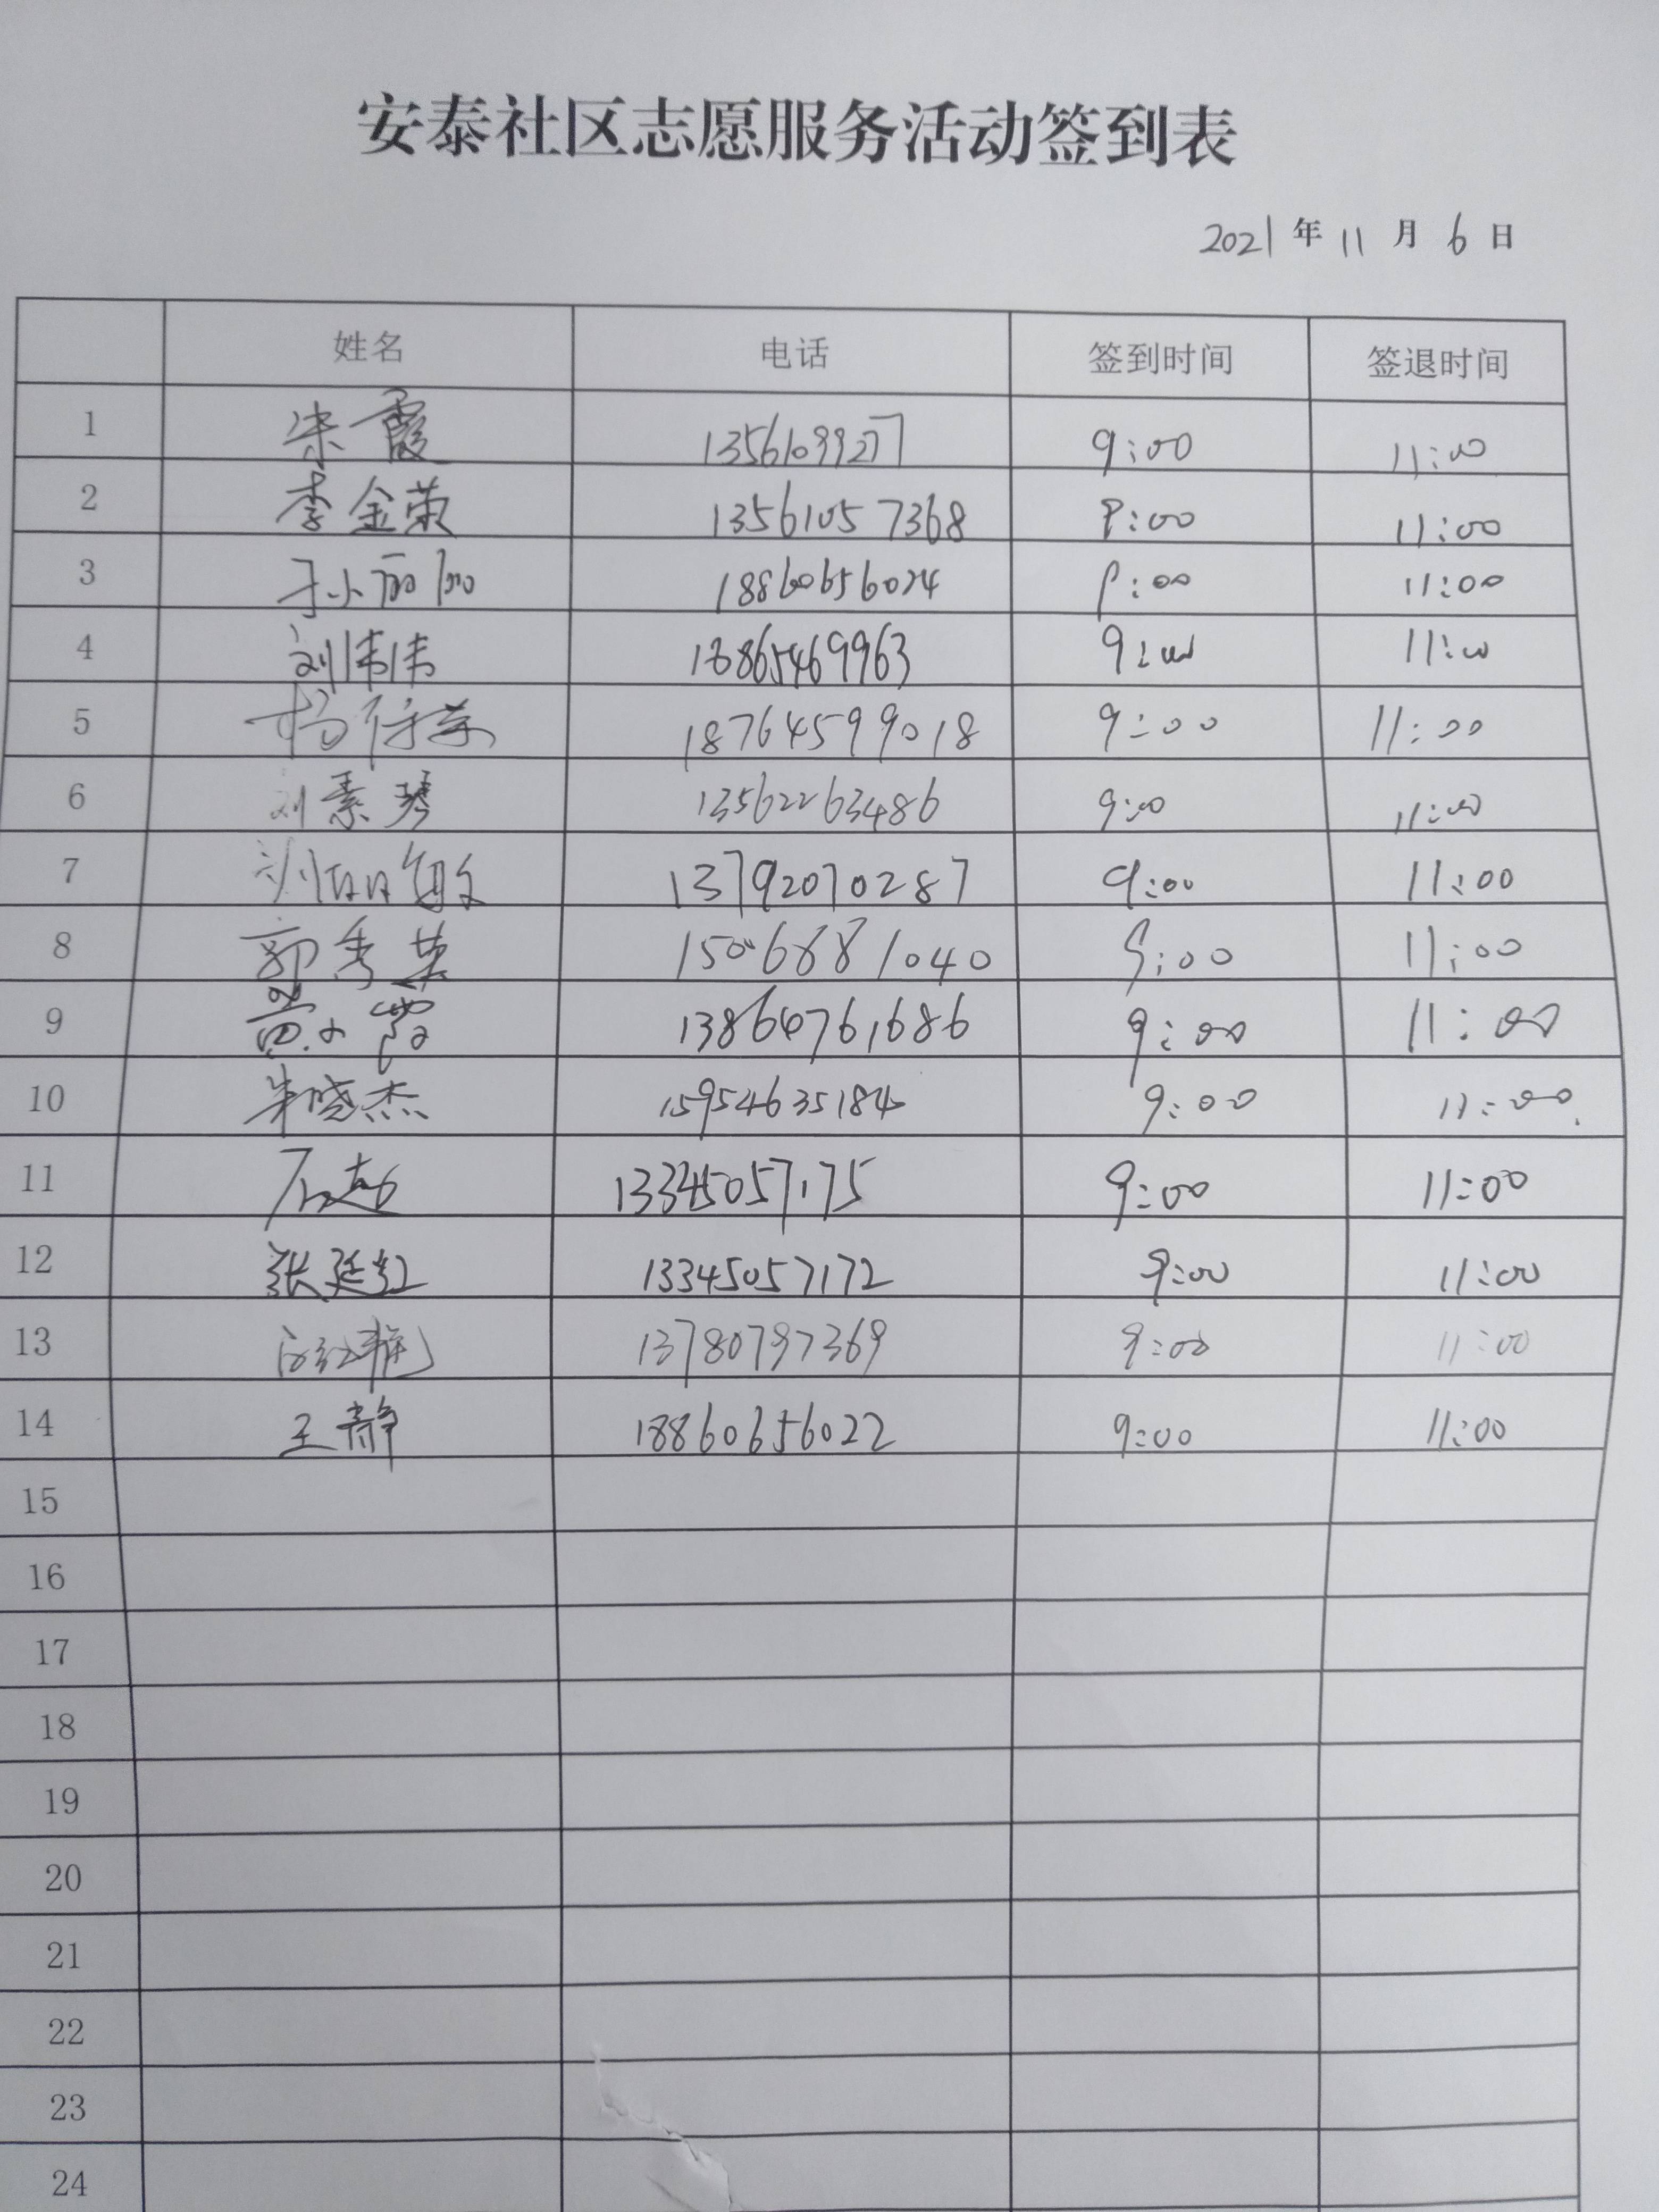 安泰社区志愿服务活动签到表
2021 年 11 月 6 日
姓名 电话 签到时间 签退时间
1 朱霞 13561099277 9:00 11:00
2 李金荣 13561057368 9:00 11:00
3 于小丽 18860656024 9:00 11:00
4 刘伟伟 18865469963 9:00 11:00
5 杨 18764599018 9:00 11:00
6 刘素琴 13562263486 9:00 11:00
7 刘 13792070287 9:00 11:00
8 郭秀英 15066881040 9:00 11:00
9 13864761686 9:00 11:00
10 朱晓杰 15954635184 9:00 11:00
11 13345057175 9:00 11:00
12 张廷红 13345057172 9:00 11:00
13 13780797369 9:00 11:00
14 王静 18860656022 9:00 11:00
15
16
17
18
19
20
21
22
23
24